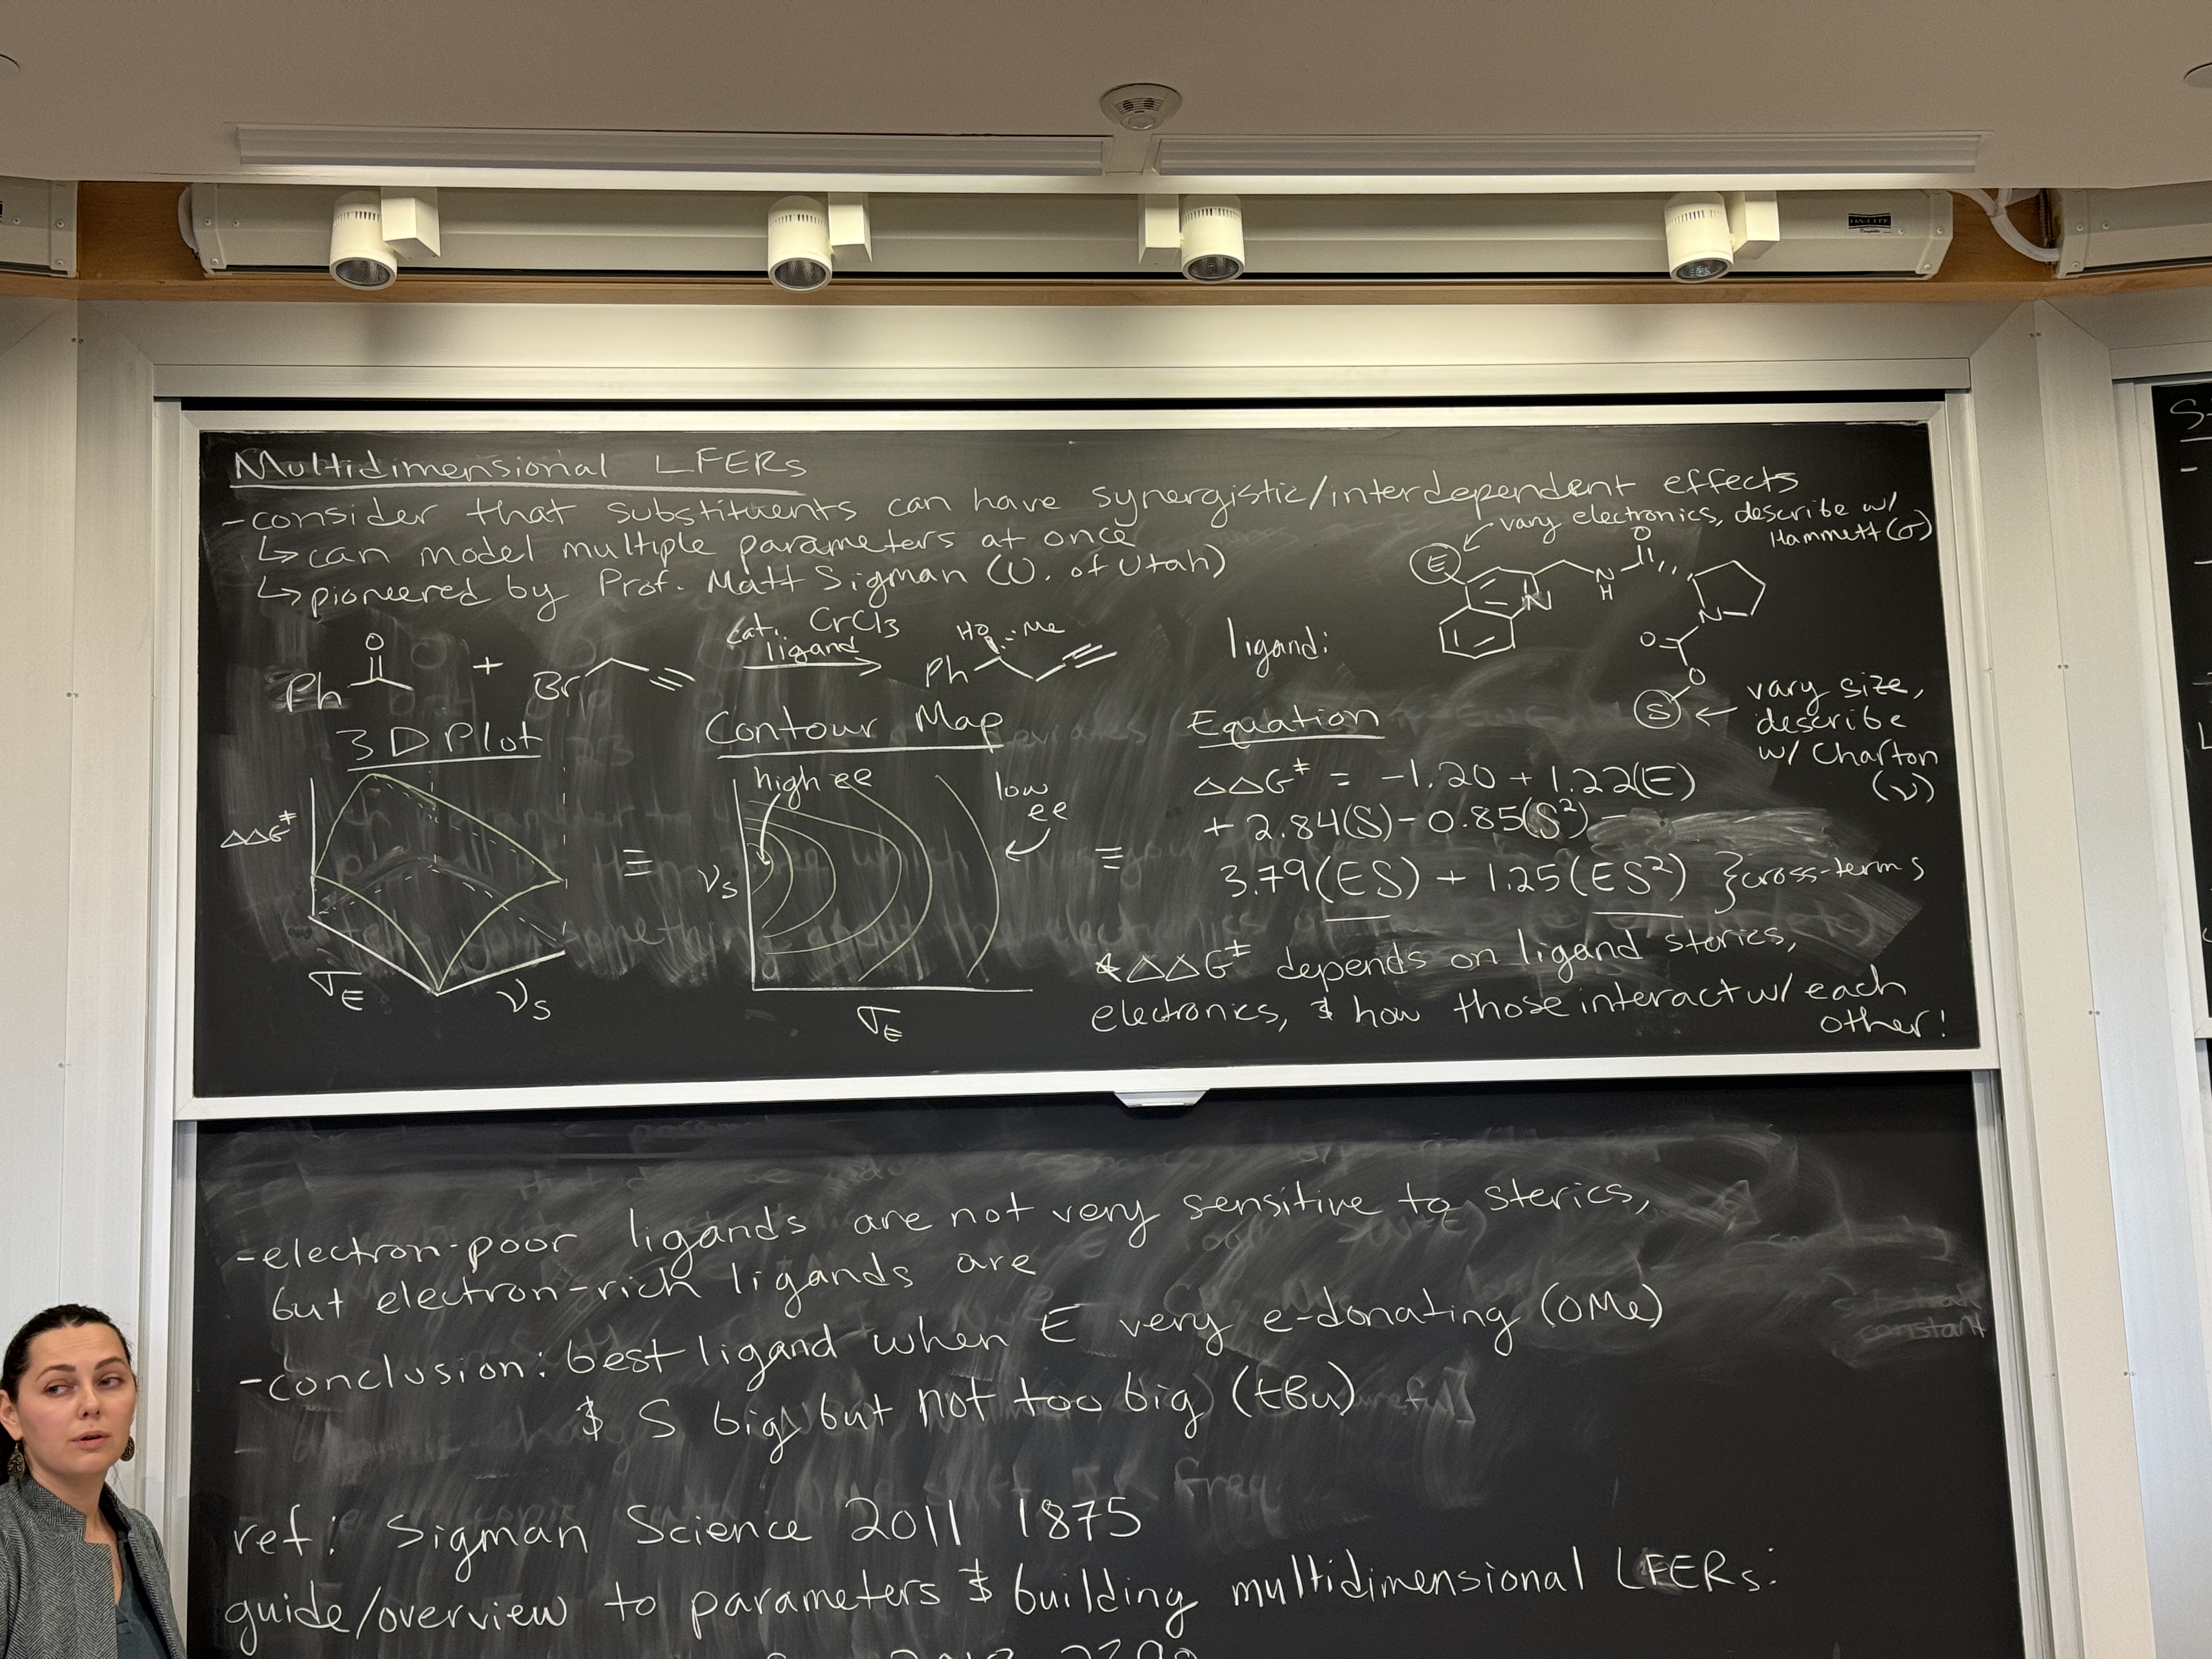 Multidimensional LFERs
- consider that substituents can have synergistic/interdependent effects
↳ can model multiple parameters at once
↳ pioneered by Prof. Matt Sigman (U. of Utah)
vary electronics, describe w/
Hammett (σ)
E
O
N
H
N
N
O
O
S
vary size,
describe
w/ Charton
(ν)
ligand:
O
Ph
+
Br
cat. CrCl3
ligand
HO
Me
Ph
3D Plot
ΔΔG‡
σE
νS
≡
Contour Map
high ee
low
ee
νS
σE
≡
Equation
ΔΔG‡ = -1.20 + 1.22(E)
+ 2.84(S) - 0.85(S²) -
3.79(ES) + 1.25(ES²) } cross-terms
* ΔΔG‡ depends on ligand sterics,
electronics, & how those interact w/ each
other!
- electron-poor ligands are not very sensitive to sterics,
but electron-rich ligands are
- conclusion: best ligand when E very e-donating (OMe)
& S big but not too big (tBu)
ref: Sigman Science 2011 1875
guide/overview to parameters & building multidimensional LFERs:
DA-LITE